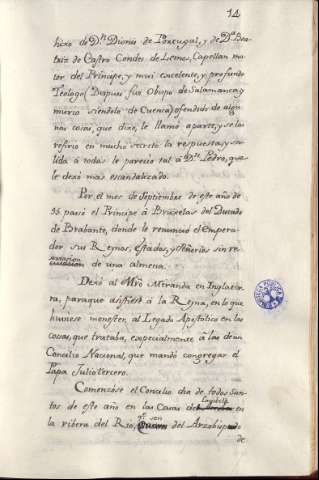 14
hixo de Dn. Dionis de Portugal, y de Da. Bea-
triz de Castro Condes de Lemos, Capellan ma-
ior del Principe, y mui excelente, y profundo
Teologo (Despues fue Obispo de Salamanca, y
murio siendolo de Cuenca) ofendido de algu-
nas cosas, que dixo, le llamó aparte, y se las
refirio en mucho secreto la respuesta, y sa-
lida á todas le parecio tal á Dn. Pedro, que
le dexó mas escandalizado.
Por el mes de Septiembre de este año de
55 pasó el Principe á Bruxelas del Ducado
de Brabante, donde le renunció el Empera-
dor sus Reynos, Estados, y Señorios sin re-
de una almena.
Dexó al Mro. Miranda en Inglater-
ra, paraque asistiese á la Reyna, en lo que
huviese menester, al Legado Apostolico en las
cosas, que trataba, especialmente á las de un
Concilio Nacional, que mandó congregar el
Papa Julio tercero.
Comenzóse el Concilio dia de todos San-
tos de este año en las Casas de en
la ribera del Rio, qe. son del Arzobispado
de